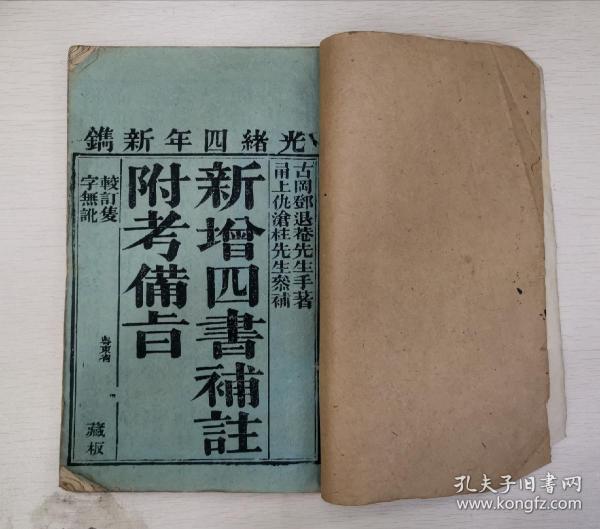 光緒四年新鐫
古岡鄧退菴先生手著
甬上仇滄柱先生叅補
新增四書補註
附考備旨
較訂隻
字無訛
粤東省
藏板
孔夫子旧书网
www.kongfz.com